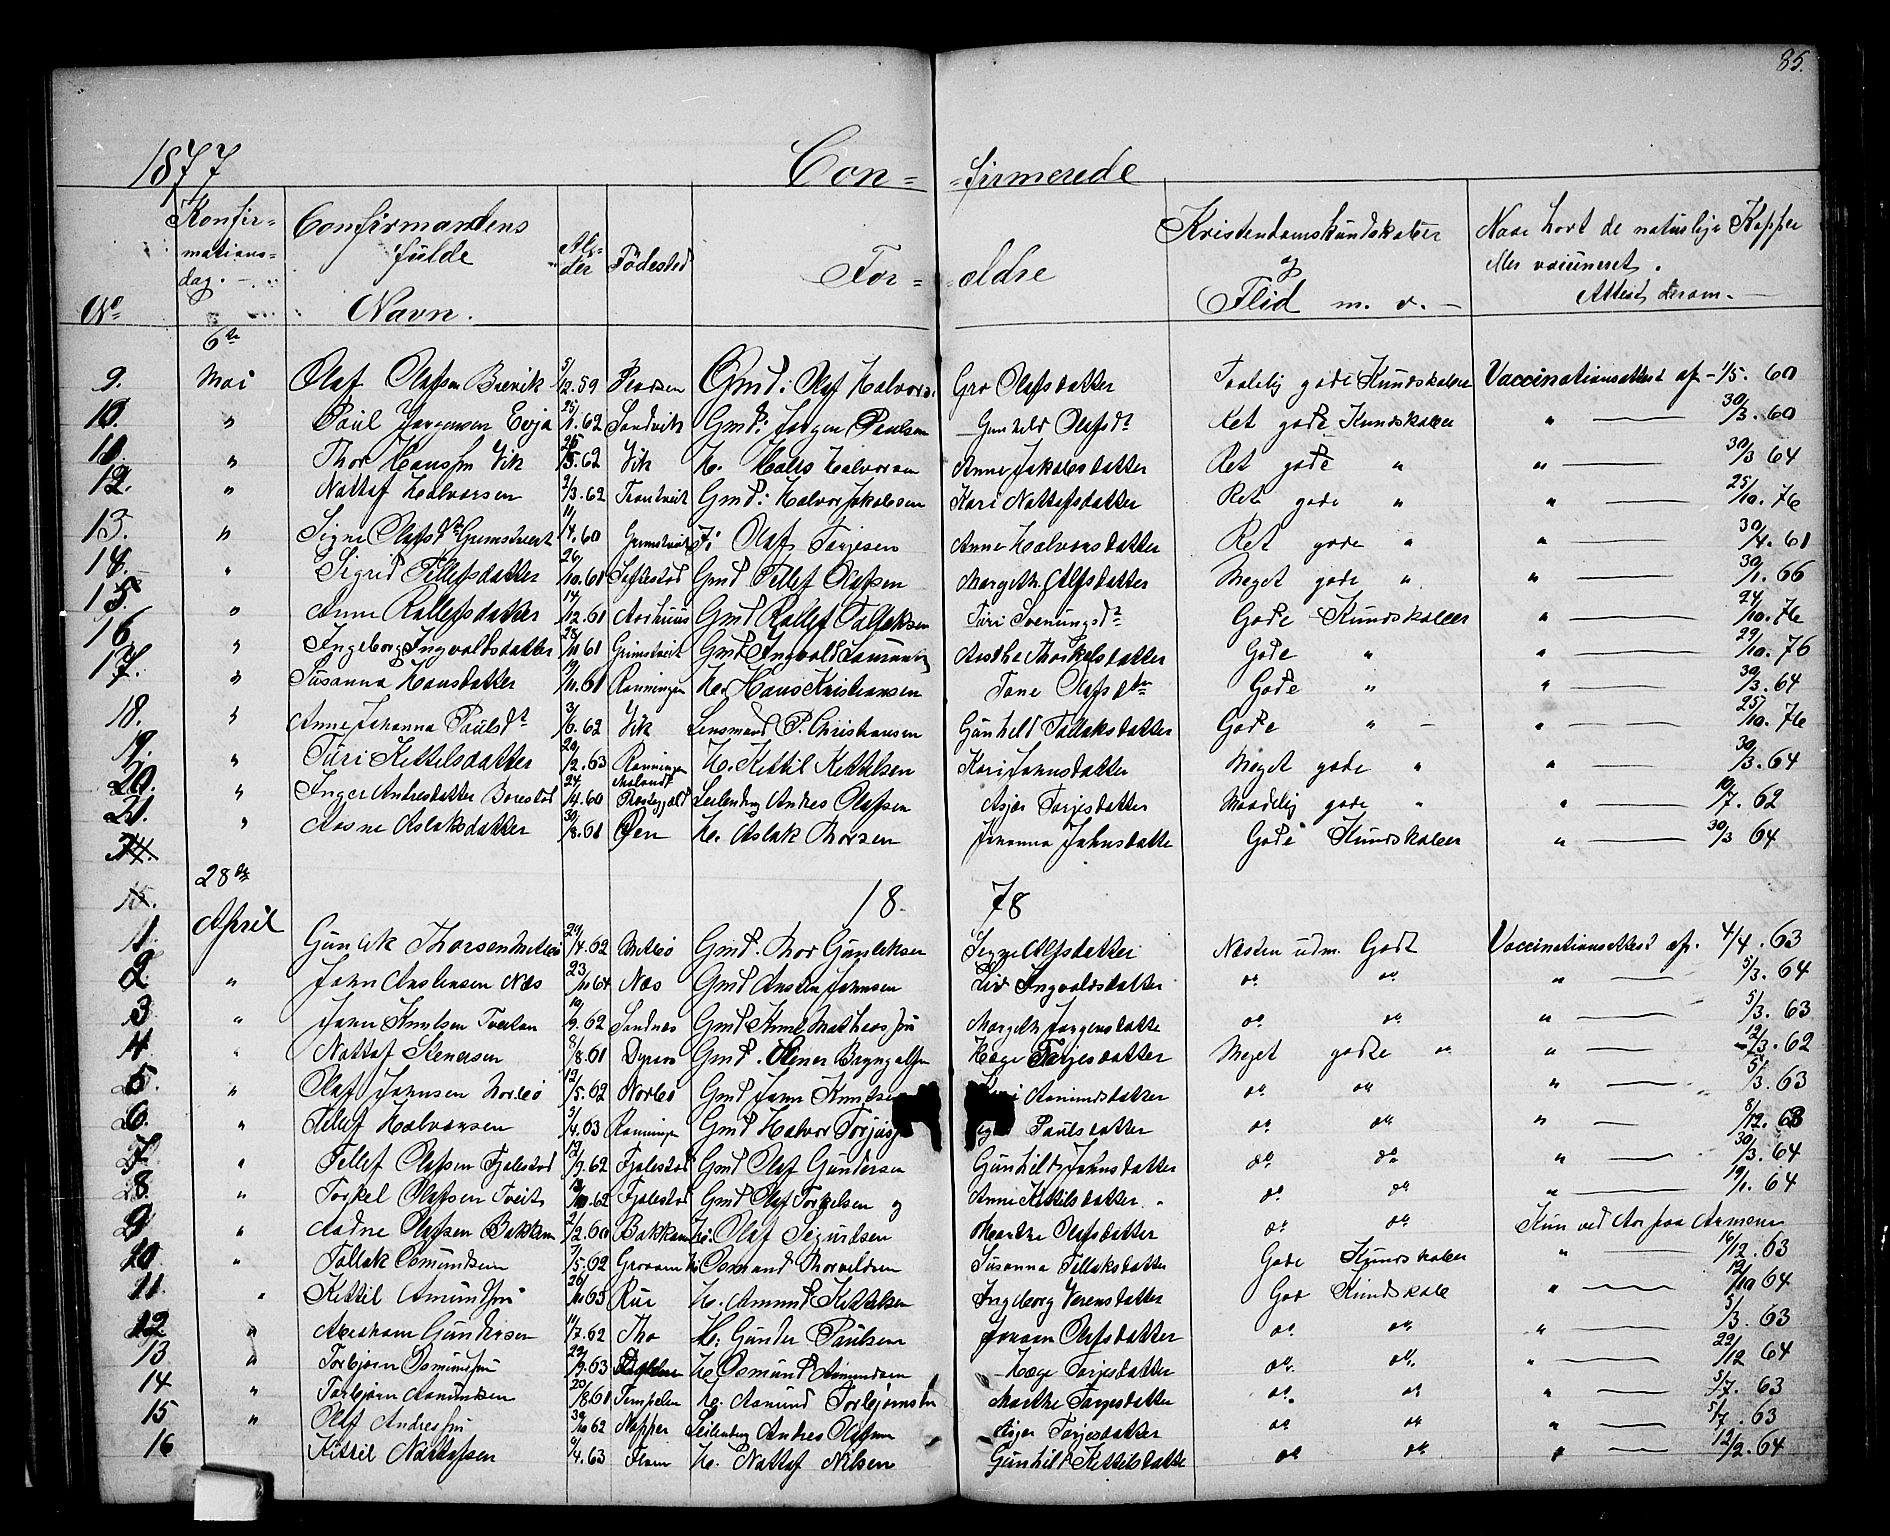 85.
1877 Con= =firmerede
No Konfir=mations=dag. Confirmandens fulde Navn. Al=der Födested For= =ældre Kristendomskundskaber og Flid m. v. Naar havt de naturlige Kopper eller vaccineret. Attest derom.
6te
9. Mai Olaf Olafsen Brevik 5/12.59 Gmd: Olaf Halvorsen Gro Olafsdatter Taalelig gode Kundskaber Vaccinationsattest af 1/5. 60
10. " Paul Jørgensen Evja 25/1.62 Sandvik Gmd: Jørgen Paulsen Gunhild Olafsdr Ret gode Kundskaber " 30/3. 60
11. " Thor Hansen Vik 25/5.62 Vik H. Halvorsen Anne Jakobsdatter Ret gode " " 30/3 64
12. " Nottaf Halvorsen 2/3.62 Trontveit Gmd: Halvor Jakobsen Kari Nottafsdatter Ret gode " " 25/10. 76
13. " Signe Olafsdr Grimstveit 11/4.60 Grimstveit Olaf Tarjesen Anne Halvorsdatter Ret gode " " 30/4. 61
14. " Sigrid Tellefsdatter 26/10.61 Gmd Tellef Olafsen Margethe Olafsdatter Meget gode " " 30/1. 66
15. " Anne Rollefsdatter 14/12.61 Aarhuus Gmd Rollef Tallaksen Turi Svenungsdr Gode Kundskaber " 24/10. 76
16 " Ingeborg Ingvoldsdatter 28/11 61 Grimstveit Gmd Ingvold Aasbe Thorkelsdatter Gode " " 29/10. 76
17. " Susanna Hansdatter 19/11.61 Rønningen H. Hans Kristiansen Tone Olafsdtr Gode " " 30/3. 64
18. " Anne Johanna Paulsdr 3/6. 62 Vik Lensmand P. Christiansen Gunhild Tallaksdatter Gode " " 25/10. 76
19. " Turi Kettilsdatter 20/2. 63 Rønningen H. Kettil Kettilsen Kari Johnsdatter Meget gode " " 30/3. 64
20. " Inger Andresdatter Borestad 24/4. 60 Præstegjæld Leilending Andres Olafsen Asjer Tarjesdatter Maadelig gode " " 10/7. 62
21. " Aasne Aslaksdatter 30/8. 61 Øen H. Aslak Thorsen Johanna Johnsdatter Gode Kundskaber " 30/3 64
28de
18 78
1. April Gunlek Thorsen 29/4.62 Gmd. Thor Gunleksen Alfsdatter Næsten udm. Godt Vaccinationsattest af. 4/4. 63
2 " John Anstensen Næs 23/11 64 Næs Gmd Ansten Johnsen Liv Ingvoldsdatter do do " 5/3. 64
3 " John Knutsen Tveitan 19/9. 62 Sandnes Gmd Knut Mathiasen Margith Jørgensdatter do do " 5/3. 63
4. " Nottaf Stenersen 8/8.61 Gmd. Stener Bryngelsen Hæge Tarjesdatter Meget gode " " 12/3. 62
5. " Olaf Johnsen Norbø 12/5. 62 Norbø Gmd John Knutsen Aamundsdatter do do " 5/3. 63
6. " Tellef Halvorsen 5/4.63 Rønningen Gmd Halvor Paulsdatter do do " 8/12. 63
7 " Tellef Olafsen Fjalestad 12/9. 62 Fjalestad Gmd Olaf Gundersen Gunhild Johnsdatter do do " 30/3. 64
8. " Torkel Olafsen Tveit 62 Fjalestad Gmd Olaf Torkelsen og Anne Kittilsdatter do do " 19/1. 64
9 " Aadne Olafsen Bakkan 2/2.60 Bakkan H: Olaf Sigurdsen Marthe Olafsdatter do do Kun ved Ar paa Armene
10 " Tallak Osmundsen 7/5.62 Osmund Thorvildsen Susanna Tellaksdatter Gode Kundskaber " 16/12. 63
11. " Kittil Amundsen 26/11 63 Rue H. Amund Kittilsen Ingeborg Verensdatter God Kundskab " 12/10 64
12 " Abraham Gundersen 11/7. 62 Tho H: Gunder Paulsen Olafsdatter do do " 5/3. 63
13 " Torbjørn Osmundsen 29/9. 63 H. Osmund Aamundsen Hæge Tarjesdatter do do " 22/12 64
14 " Torbjørn Aamundsen 20/8.61 Tempelen H. Aamund Torbjørnsen Marthe Tarjesdatter do do " 5/7. 63
15 " Olaf Andresen 30/10 62 Napper Leilending Andres Olafsen Asjer Tarjesdatter do do " 5/7. 63
16 Kittil Nottafsen 9/4.63 Flom H. Nottaf Nilsen Gunhild Kittilsdatter do do " 12/2. 64